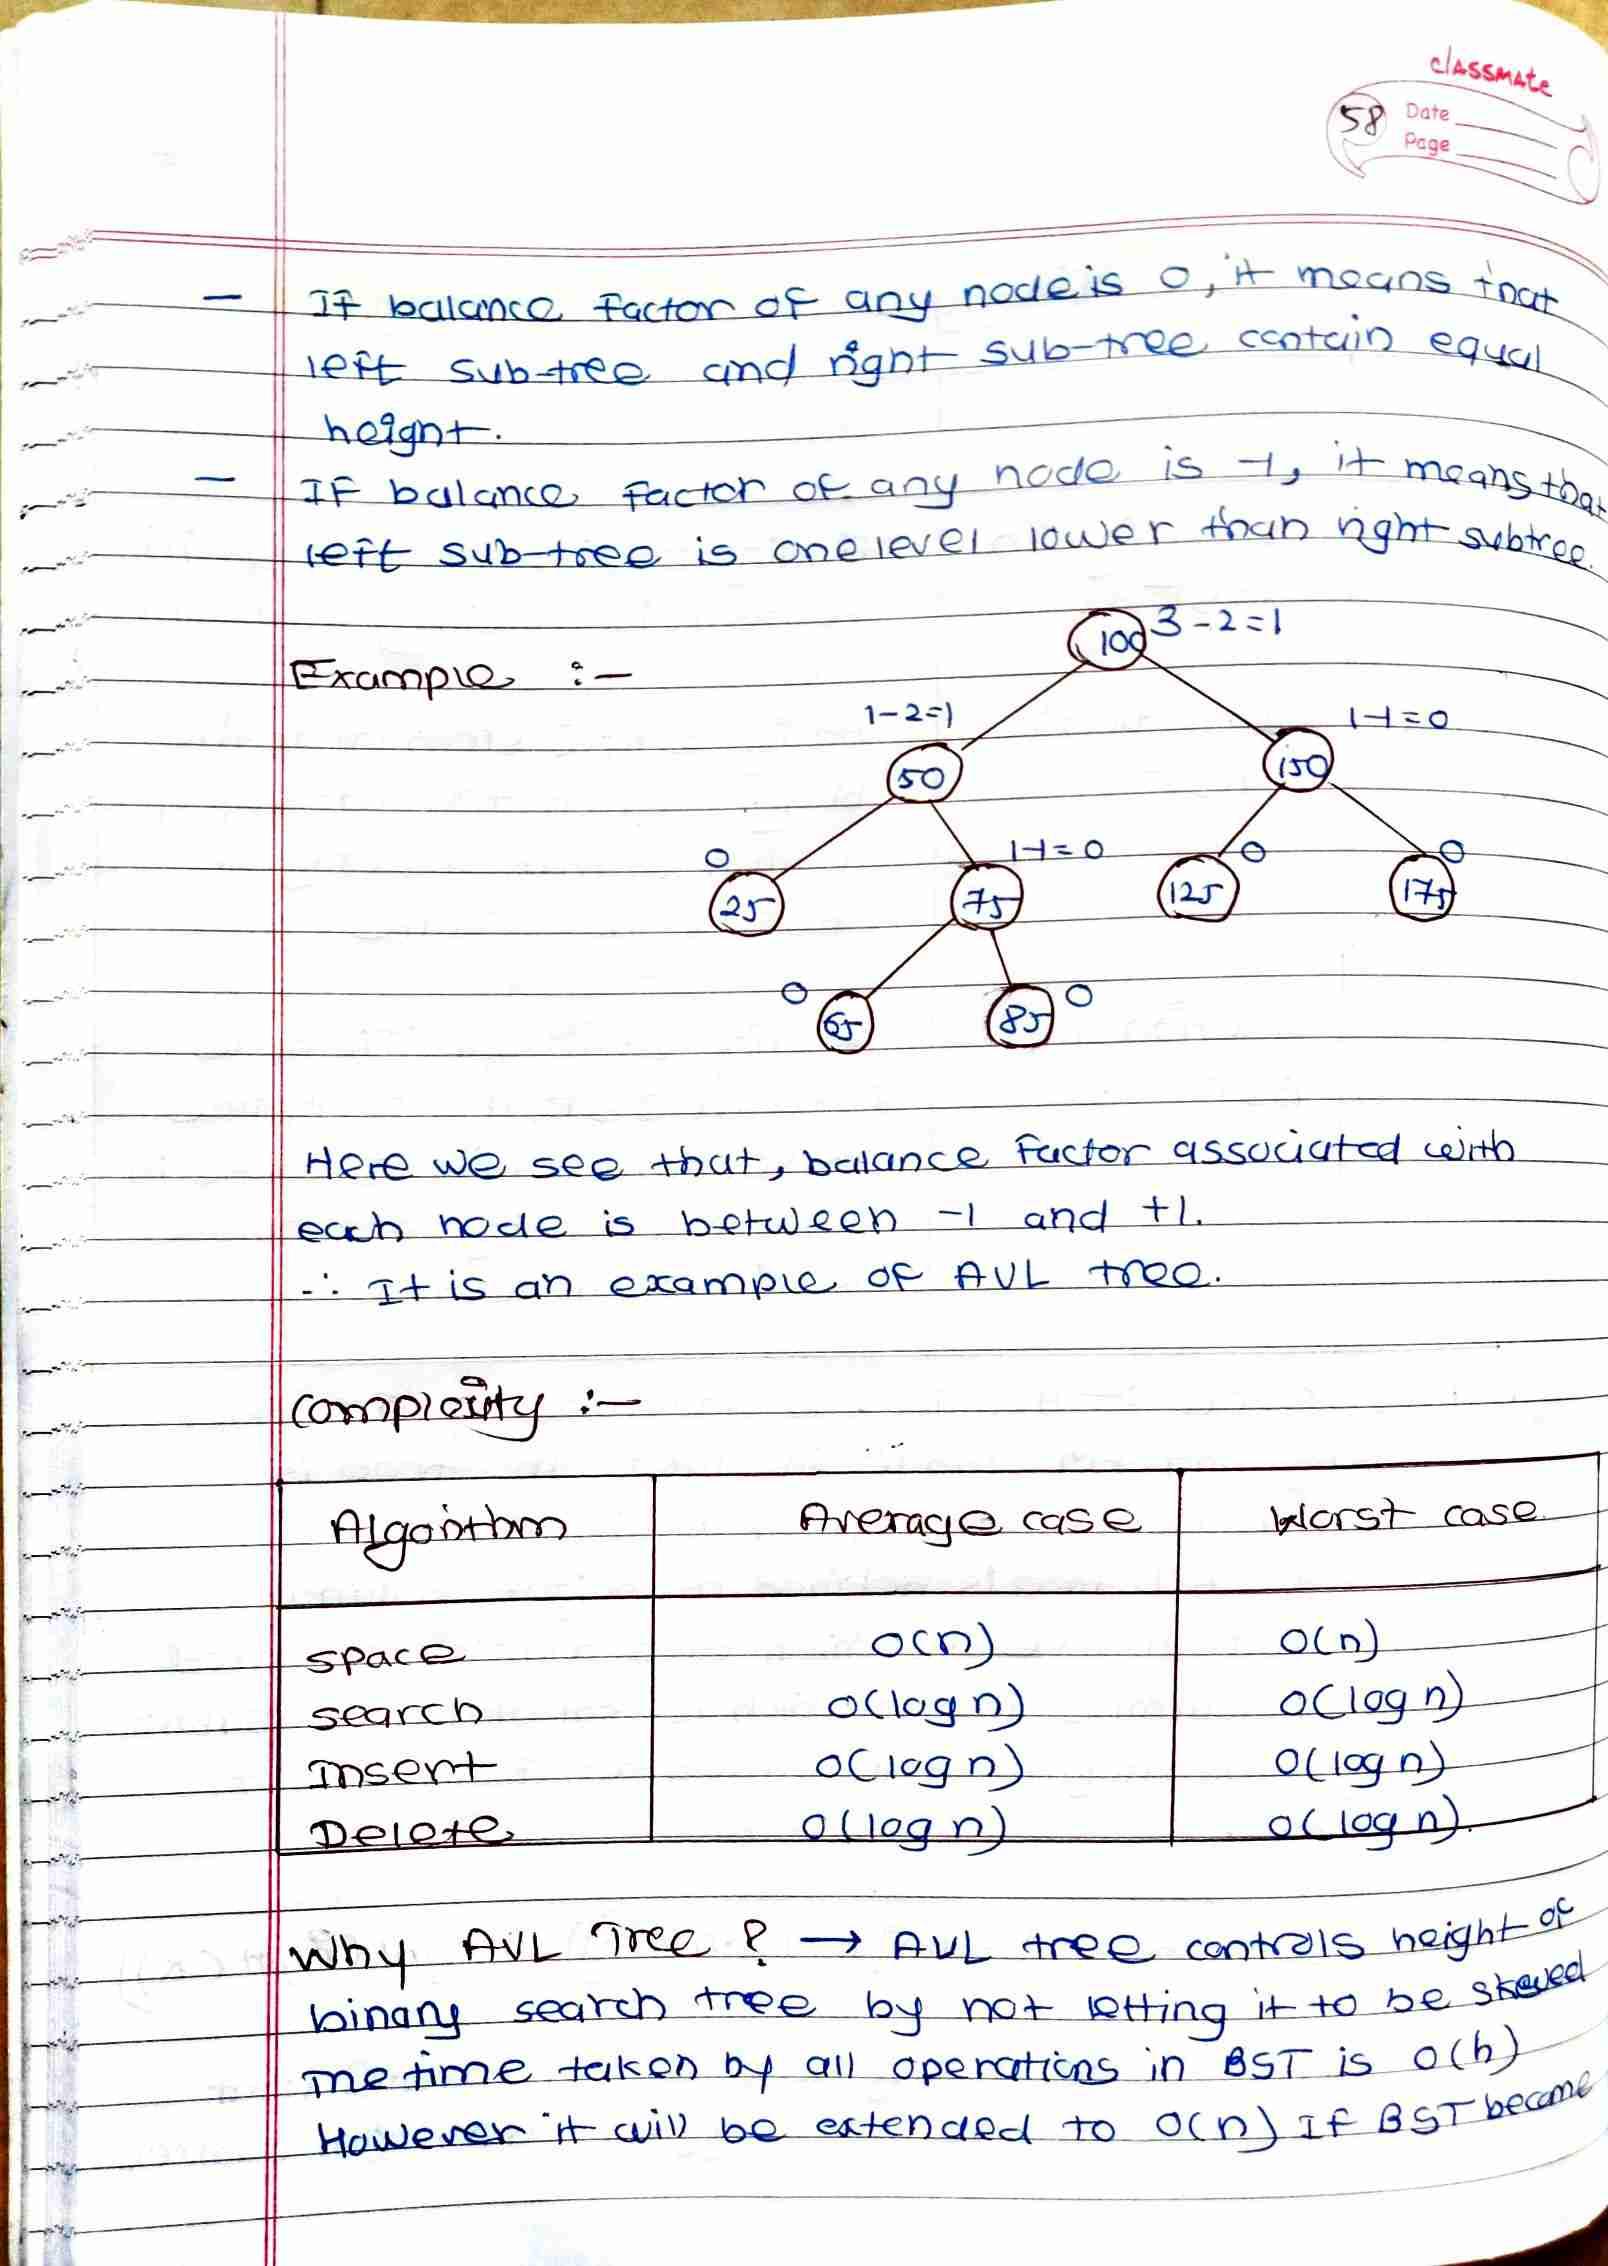 classmate
58 Date
Page
- If balance factor of any node is 0, it means that
left sub-tree and right sub-tree contain equal
height.
- If balance factor of any node is -1, it means that
left sub-tree is one level lower than right subtree.
Example :-
100 3-2=1
1-2=1 1-1=0
50 150
0 1-1=0 0 0
25 75 125 175
0 0
65 85
Here we see that, balance factor associated with
each node is between -1 and +1.
∴ It is an example of AVL tree.
Complexity :-
Algorithm Average case Worst case
space O(n) O(n)
search O(log n) O(log n)
Insert O(log n) O(log n)
Delete O(log n) O(log n).
Why AVL Tree ? → AVL tree controls height of
binary search tree by not letting it to be skewed
The time taken by all operations in BST is O(h)
However it will be extended to O(n) If BST become